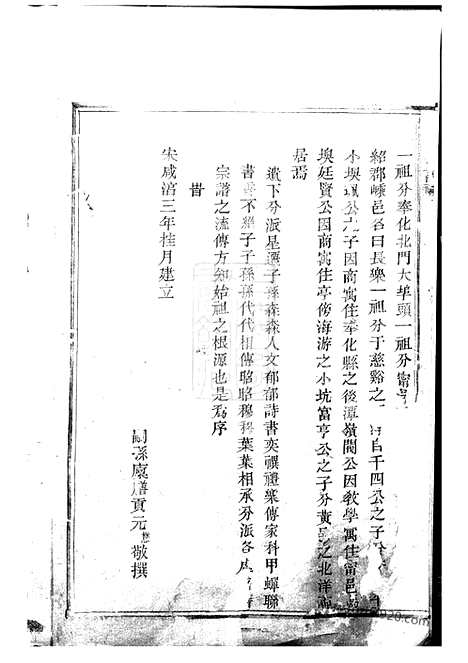 一祖分奉化北門大埠頭一祖分甯
紹郡嵊邑名曰長樂一祖分于慈谿之 百千四公之子
小㘰 公 子因商寓住奉化縣之後潭嶺閬公因教學寓住甯邑
㘰廷賢公因商寓住亭傍海游之小坑富亨公之子分黃 之北洋
居焉
遺下分派星遷子孫森森人文郁郁詩書奕禩禮樂傳家科甲蟬聯
書 不絕子子孫孫代代相傳昭昭穆穆葉葉相承分派各
宗譜之流傳方知始祖之根源也是爲序
旹
宋咸淳三年桂月建立
嗣孫廩膳貢元 敬撰